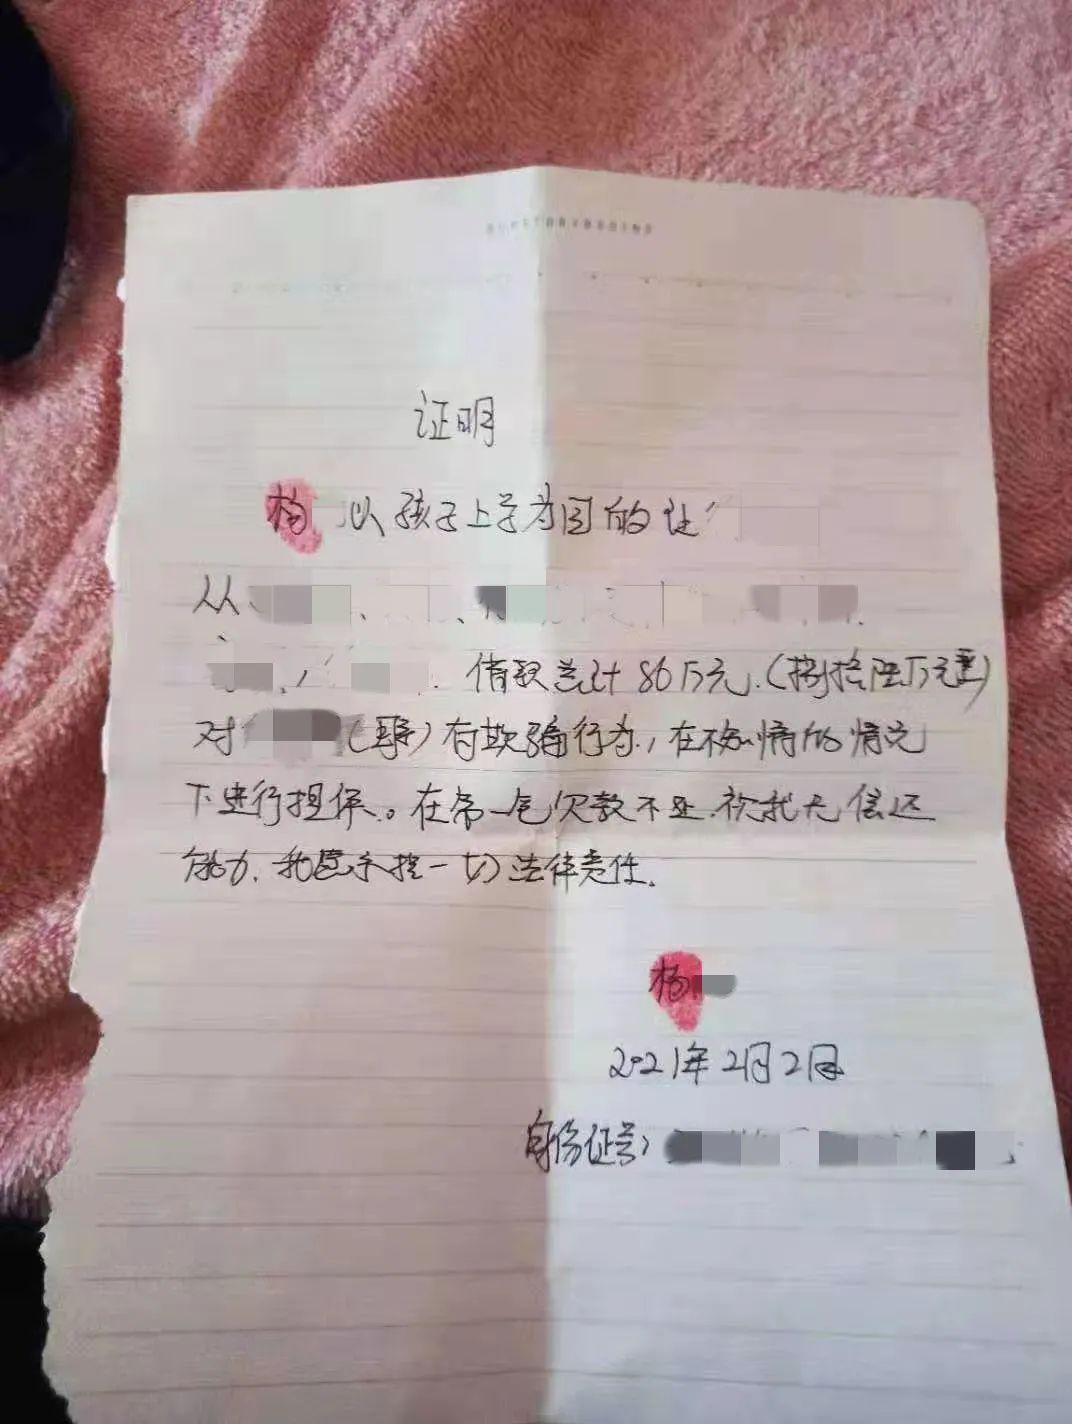 证明
杨 以孩子上学为目的让
从
借款总计86万元.(捌拾陆万元整)
对 ( ) 有欺骗行为,在不知情的情况
下进行担保。在第一笔欠款不还 我无偿还
能力.我愿承担一切法律责任.
杨
2021年2月2日
身份证号: